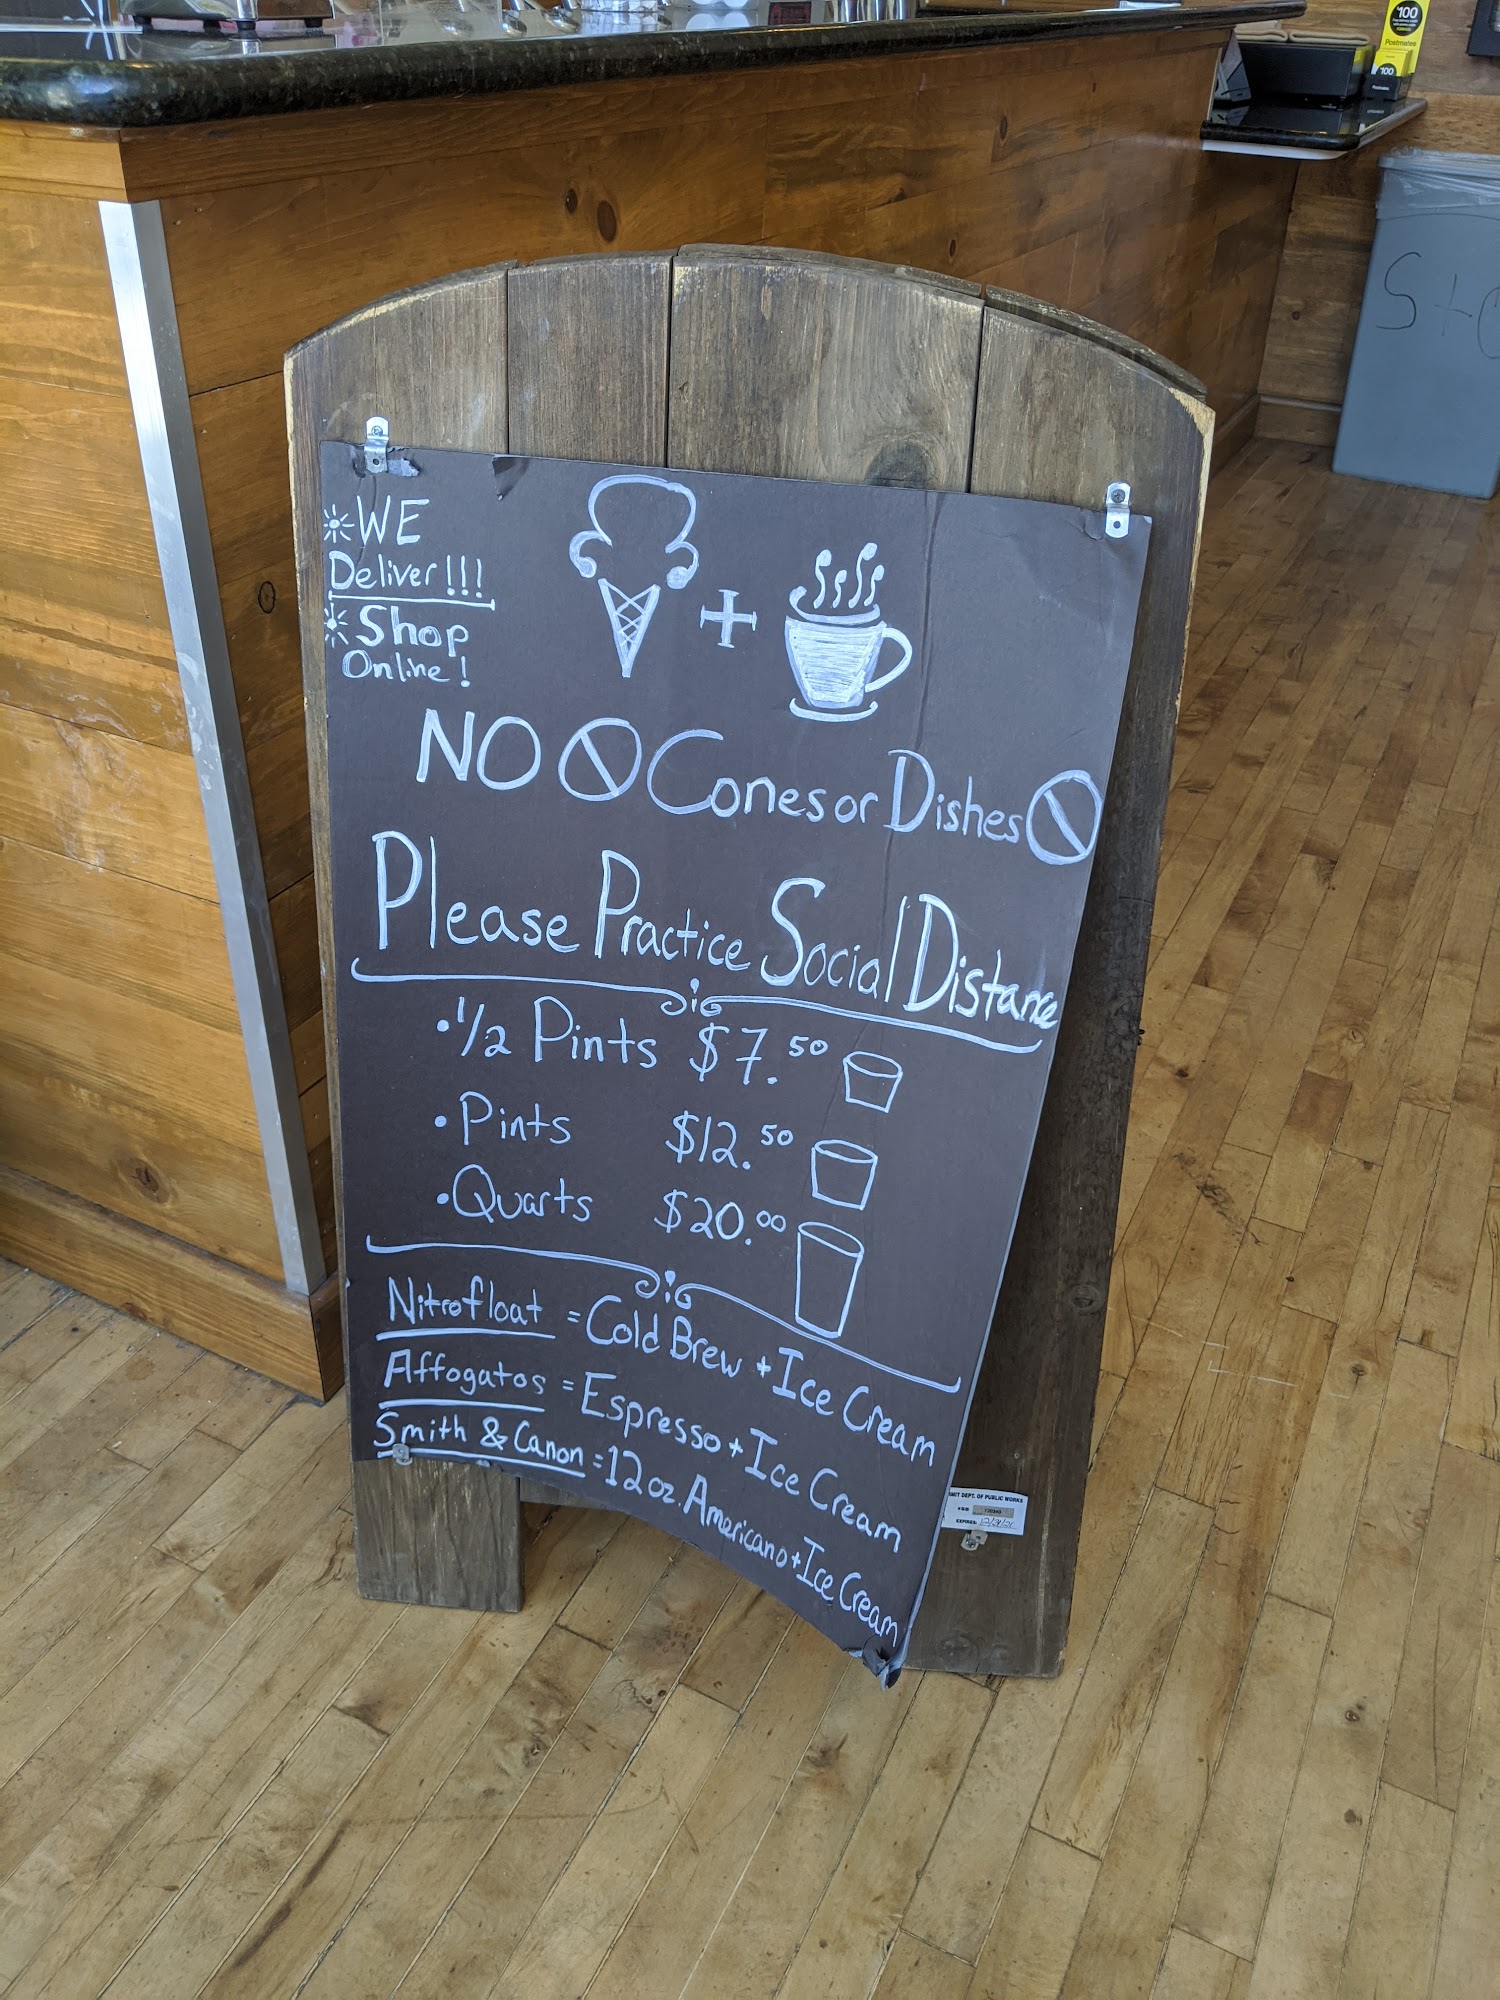 WE
Deliver!!!
Shop
Online!
+
NO Cones or Dishes
Please Practice Social Distance
• 1/2 Pints $7.50
• Pints $12.50
• Quarts $20.00
Nitrofloat = Cold Brew + Ice Cream
Affogatos = Espresso + Ice Cream
Smith & Canon = 12oz. Americano + Ice Cream
DEPT. OF PUBLIC WORKS
EXPIRES: 12/31/21
$100
Postmates
$100
Postmates
S + C